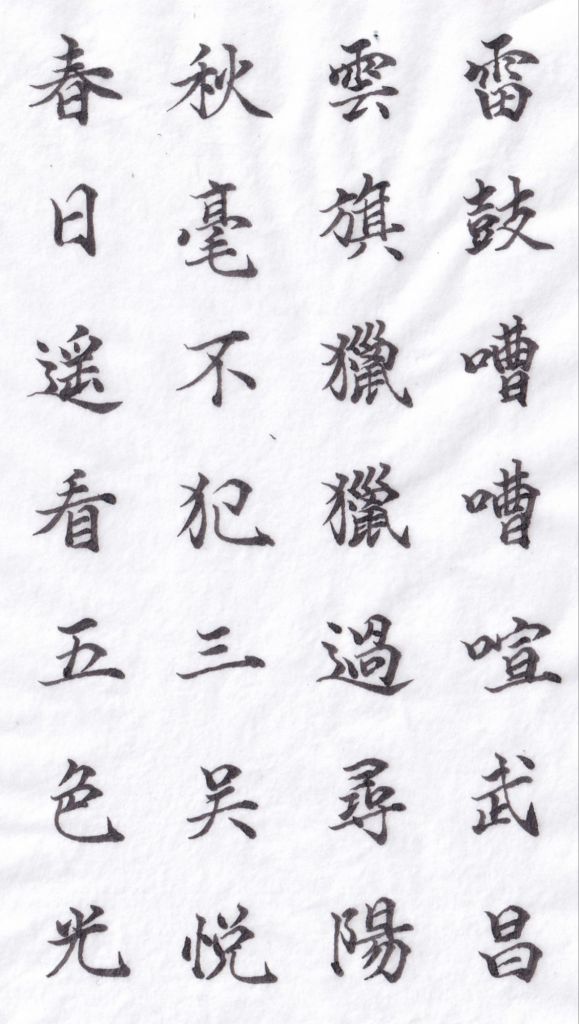 雷鼓嘈嘈喧武昌
雲旗獵獵過尋陽
秋毫不犯三吴悦
春日遥看五色光